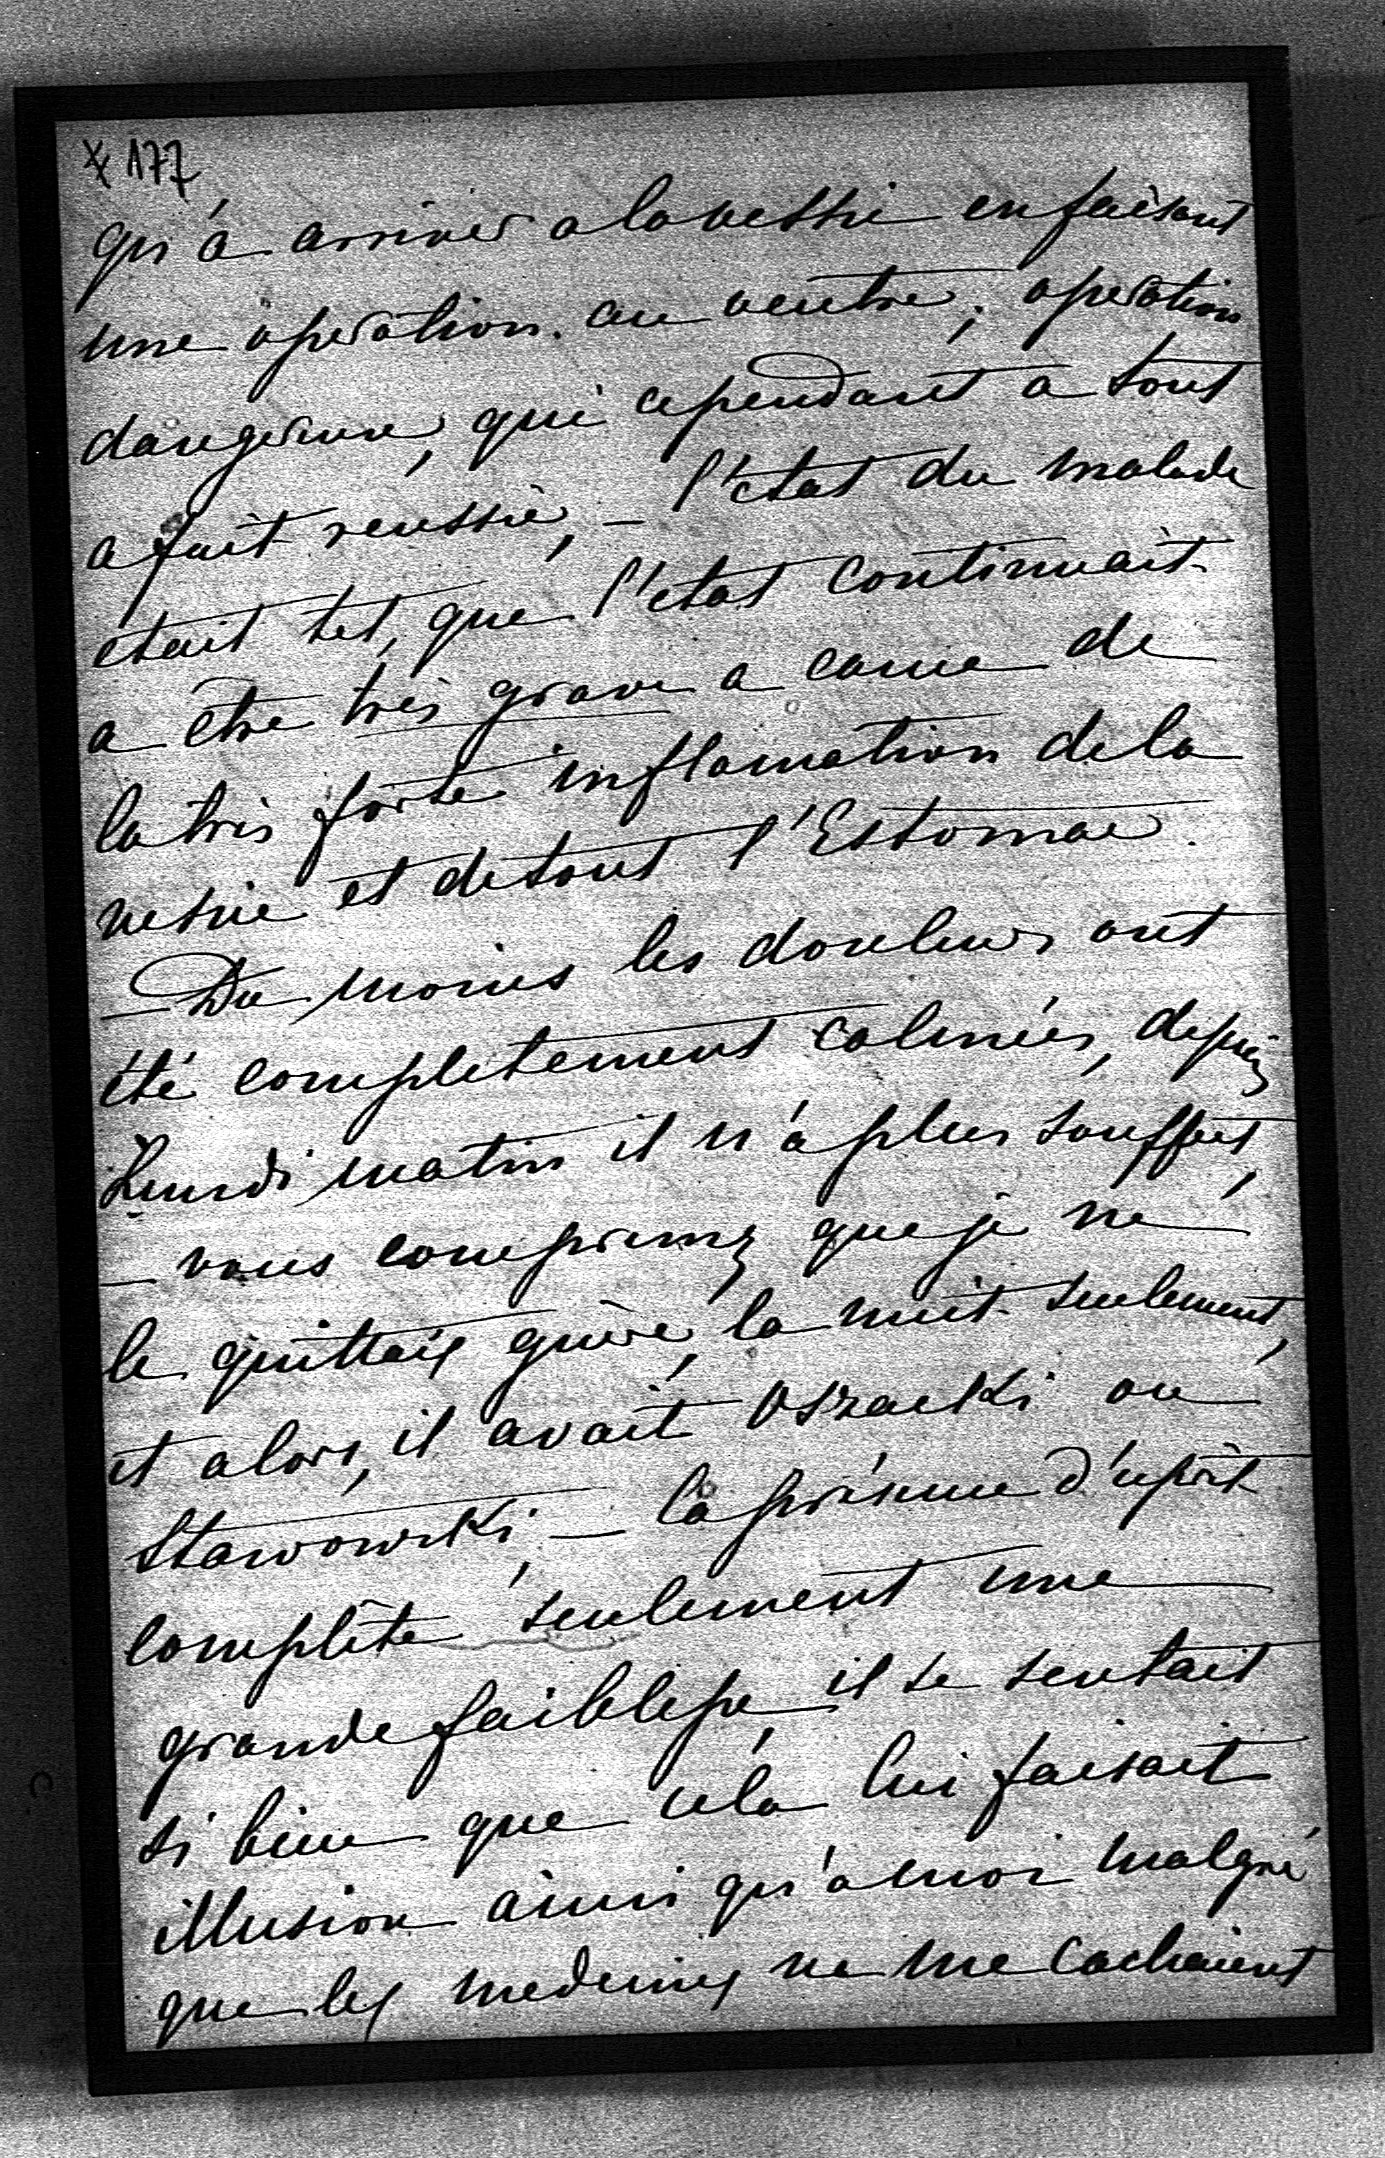 177
qu'á arriver a la vessie en faisant
une operation au ventre, operation
dangereuse, qui cependant a tout
a fait reussie, – l'état du malade
etait tel, que l'etat continuait
a être très grave a cause de
la très forte inflamation de la
vessie et de tout l'Estomac.
– Du moins les douleurs ont
été completement calmées, depuis
Lundi matin il n'a plus souffert,
– vous comprenez que je ne
le quittais guère, la nuit seulement,
et alors, il avait Oszacki ou
Stawowski, – la présence d'esprit
complête seulement une
grande faiblesse, il se sentait
si bien que cela lui faisait
illusion ainsi qu'a moi malgré
que les medecins ne me cachaient